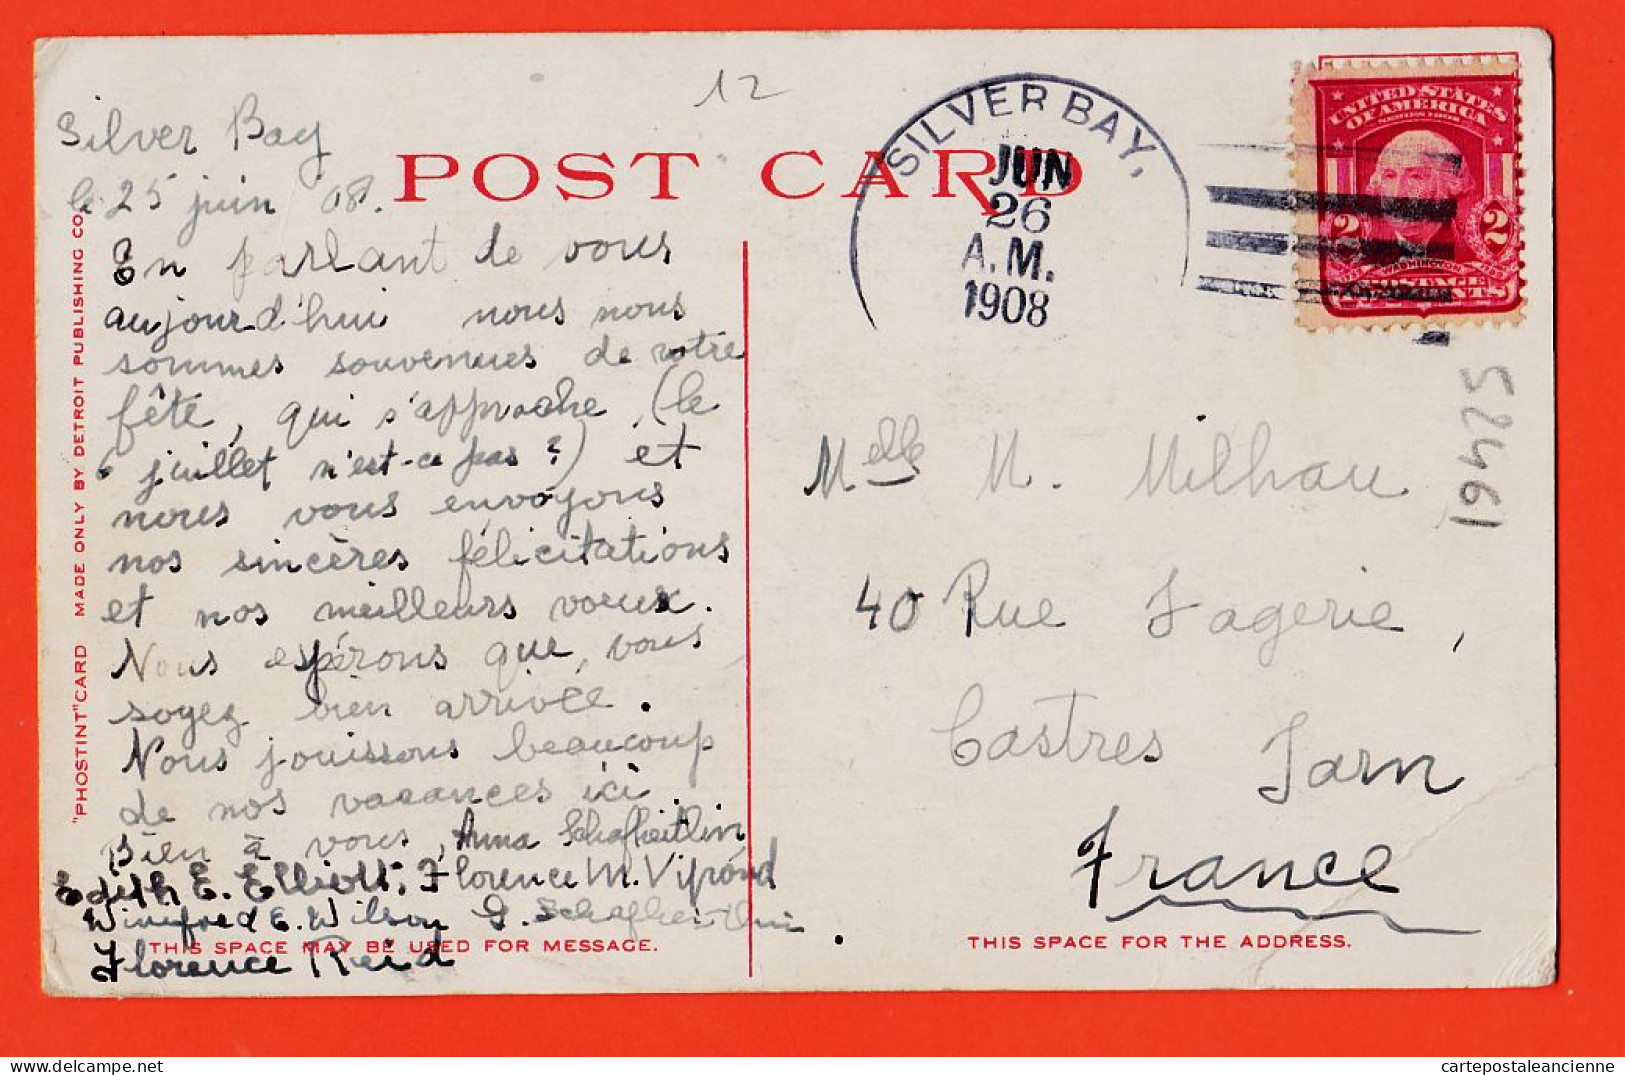 12
Silver Bay
le 25 juin 08.
POST CARD
SILVER BAY,
JUN
26
A.M.
1908
UNITED STATES
OF AMERICA
2 2
WASHINGTON
En parlant de vous
aujourd'hui nous nous
sommes souvenues de votre
fête, qui s'approche, (le
6 juillet n'est-ce pas?) et
nous vous envoyons
nos sincères félicitations
et nos meilleurs voeux.
Nous espérons que, vous
soyez bien arrivée.
Nous jouissons beaucoup
de nos vacances ici
Bien à vous, Anna Schafheitlin
Edith E. Elliott, Florence M. Vipond
Winifred E. Wilson G. Schafheitlin.
Florence Reid
THIS SPACE MAY BE USED FOR MESSAGE.
"PHOSTINT" CARD MADE ONLY BY DETROIT PUBLISHING CO.
Melle M. Milhau
40 Rue Fagerie,
Castres Tarn
France
THIS SPACE FOR THE ADDRESS.
cartepostaleancienne